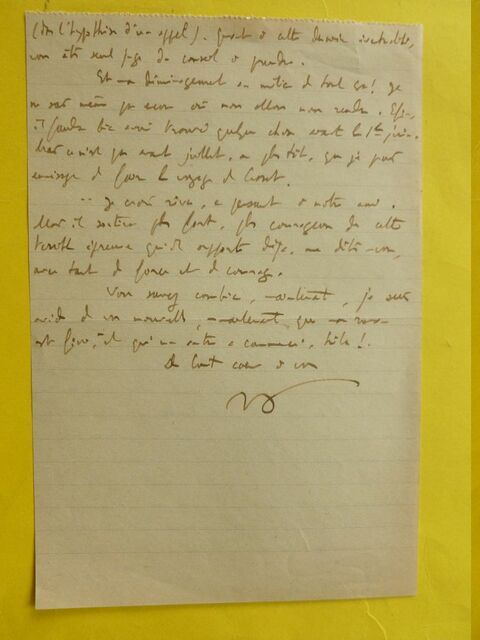 (dans l'hypothèse d'un appel). Quant à cette dernière éventualité,
vous êtes seul juge du conseil à prendre.
Et un déménagement au milieu de tout ça! Je
ne sais même pas encore où nous allons nous rendre. Enfin,
il faudra bien avoir trouvé quelque chose avant le 1er juin.
Mais ce n'est pas avant juillet, au plus tôt, que je puis
envisager de faire le voyage de
Je crois rêver, en pensant à notre ami.
Mais il sortira plus fort, plus courageux de cette
terrible épreuve qu'il supporte déjà, me dites-vous,
avec tant de force et de courage.
Vous savez combien, maintenant, je suis
avide de vos nouvelles, maintenant que un
est fini, et qu'un autre a commencé, hélas!
De tout coeur à vous